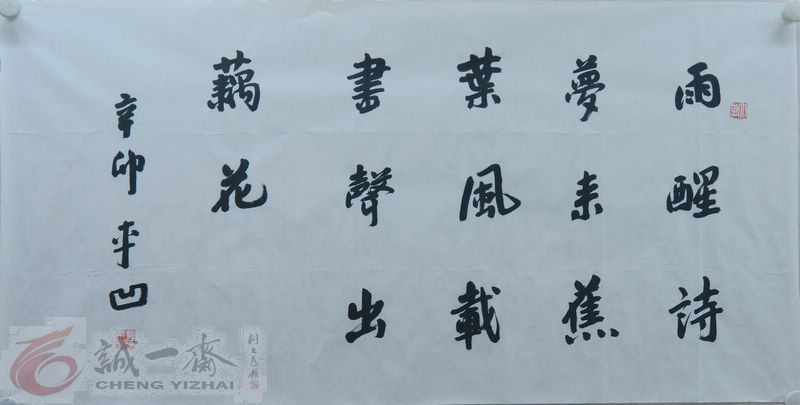 雨醒詩
夢来蕉
葉風載
書聲出
藕花
辛卯平凹
誠一齋
CHENG YIZHAI